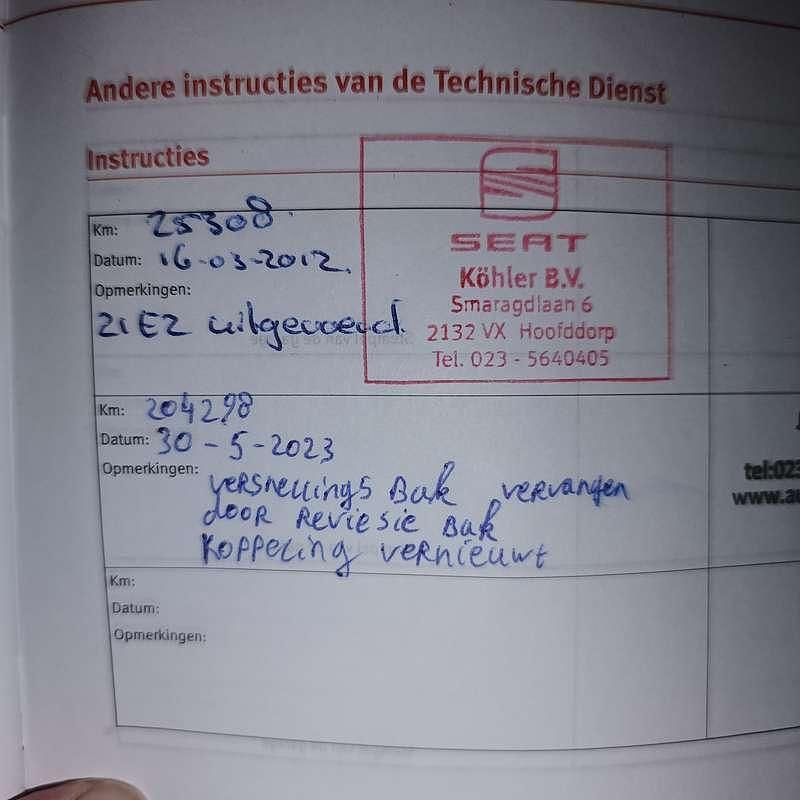 Andere instructies van de Technische Dienst
Instructies
SEAT
Köhler B.V.
Smaragdlaan 6
2132 VX Hoofddorp
Tel. 023 - 5640405
Km: 25308
Datum: 16-03-2012.
Opmerkingen:
21E2 uitgevoerd.
Km: 204298
Datum: 30-5-2023
Opmerkingen: versnellings Bak vervangen
door Reviesie Bak
Koppeling vernieuwt
tel:023
www.au
Km:
Datum:
Opmerkingen: